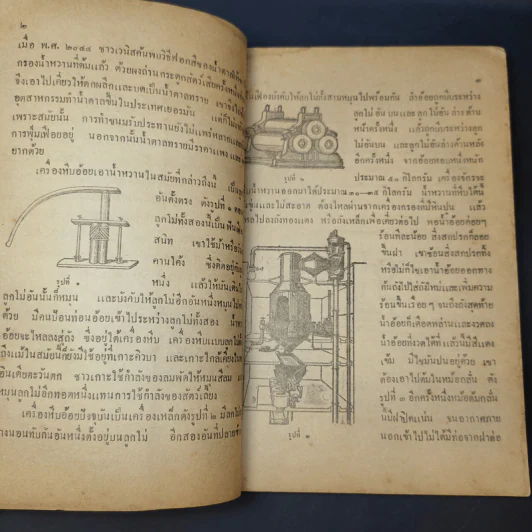 ๒
เมื่อ พ.ศ. ๒๐๔๔ ชาวเวนิสค้นพบวิธีฟอกสีของน้ำตาล
กรองน้ำหวานที่ต้มแล้ว ด้วยผงถ่านกระดูกสัตว์เสียครั้งหนึ่ง
จึงเอาไปเคี่ยวให้ตกผลึกและบดเป็นน้ำตาลทราย
อุตสาหกรรมทำน้ำตาลขึ้นในประเทศเยอรมัน
เพราะสมัยนั้น การทำขนมรับประทานยังไม่แพร่หลาย
การฟุ่มเฟือยอยู่ นอกจากนั้นน้ำตาลทรายมีราคาแพง
ยากด้วย
เครื่องหีบอ้อยเอาน้ำหวานในสมัยที่กล่าวถึงนี้
อันตั้งตรง ดังรูปที่ ๑
ลูกไม้ทั้งสองนี้เป็นฟัน
สนิท เขาใช้ม้าหรือ
คานโค้ง ซึ่งติดอยู่กับ
หนึ่ง แล้วให้มันเดิน
รูปที่ ๑
ลูกไม้อันนั้นก็หมุน และบังคับให้ลูกไม้อีกอันหนึ่งหมุน
ด้วย มีคนป้อนท่อนอ้อยเข้าไประหว่างลูกไม้ทั้งสอง
อ้อยจะไหลลงสู่ถัง ซึ่งอยู่ใต้เครื่องหีบ เครื่องหีบแบบลูกไม้
แม้ในสมัยนี้ก็ยังมีใช้อยู่ที่เกาะคิวบา และเกาะใกล้เคียง
อินเดียตะวันตก ชาวเกาะใช้กำลังของลมพัดให้หมุนสีลม
หมุนลูกไม้อีกทอดหนึ่งแทนการใช้กำลังของสัตว์เลี้ยง
เครื่องหีบอ้อยปัจจุบันเป็นเครื่องเหล็กดังรูปที่ ๒ มีลูกโม่
วางนอนทับกันอันหนึ่งตั้งอยู่บนลูกโม่ อีกสองอันที่ปลาย
๓
เฟืองบังคับให้ลูกโม่ทั้งสามหมุนไปพร้อมกัน ลำอ้อยถูกหีบระหว่าง
ลูกโม่อันบนและลูกโม่อันล่างด้าน
หน้าครั้งหนึ่ง แล้วถูกหีบระหว่างลูก
โม่อันบน และลูกโม่อันล่างด้านหลัง
อีกครั้งหนึ่ง จากอ้อยหอบหนึ่งหนัก
รูปที่ ๒
ประมาณ ๕๐ กิโลกรัม เครื่องจักรจะ
น้ำหวานออกมาได้ประมาณ ๓๐—๓๕ กิโลกรัม น้ำหวานที่หีบได้นี้
และไม่สะอาด ต้องไหลผ่านจากเครื่องกรองที่มีหินปูน แล้ว
ไปลงถังทองแดง หรือถังเหล็กเพื่อเคี่ยวต่อไป พอน้ำอ้อยค่อยๆ
ร้อนทีละน้อย สิ่งสกปรกก็ลอย
ขึ้นฝา เขาช้อนสิ่งสกปรกทิ้ง
หรือไม่ก็ไขเอาน้ำอ้อยออกทาง
ก้นถังไปใส่ถังใหม่และเพิ่มความ
ร้อนขึ้นเรื่อยๆ จนถึงถังสุดท้าย
น้ำอ้อยก็เดือดพล่านและงวดลง
น้ำอ้อยที่งวดได้ที่แล้วนี้มีสีแดง
เข้ม มีไขมันปนอยู่ด้วย เขา
ต้องเอาไปต้มในหม้อกลั่น ดัง
รูปที่ ๓ อีกครั้งหนึ่งหม้อต้มกลั่น
นี้มีฝาปิดแน่น จนอากาศภาย
นอกเข้าไปไม่ได้มีท่อจากฝาต่อ
รูปที่ ๓